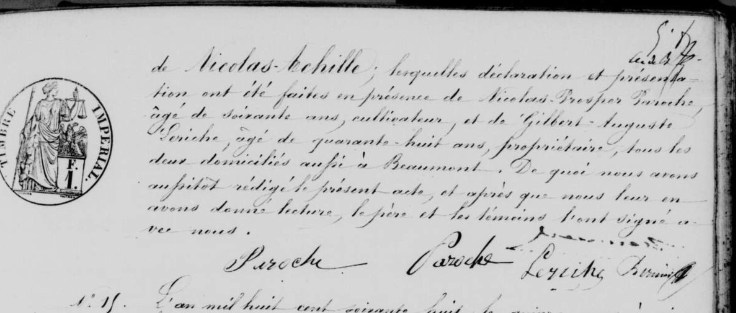 de Nicolas-Achille; lesquelles déclaration et présenta-
tion ont été faites en présence de Nicolas-Prosper Paroche,
âgé de soixante ans, cultivateur, et de Gilbert-Auguste
Leriche, âgé de quarante-huit ans, propriétaire, tous les
deux domiciliés aussi à Beaumont. De quoi nous avons
aussitôt rédigé le présent acte, et après que nous leur en
avons donné lecture, le père et les témoins l'ont signé a-
vec nous.
TIMBRE IMPÉRIAL.
F.
1.
Paroche Paroche Leriche
N° 15. L'an mil huit cent soixante-huit, le